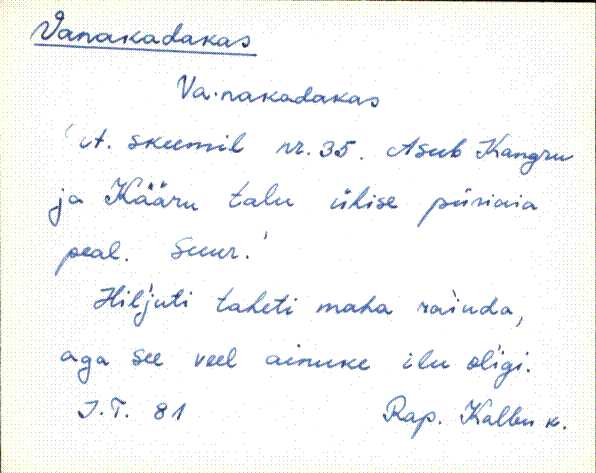 Vanakadakas
Va·nakadakas
'A. skeemil nr. 35. Asub Kangru
ja Kääru talu ühise piiriaia
peal. Suur.'
Hiĺjuti taheti maha raiuda,
aga see veel ainuke ilu oligi.
J.T. 81 Rap. Kalbu k.